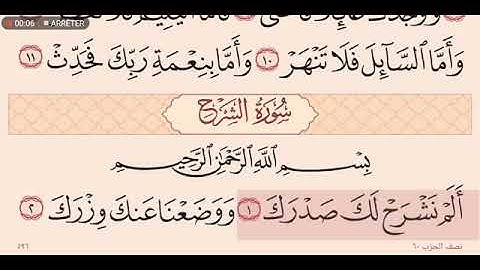 00:06 ARRÊTER
وَأَمَّا ٱلسَّآئِلَ فَلَا تَنْهَرْ ١٠ وَأَمَّا بِنِعْمَةِ رَبِّكَ فَحَدِّثْ ١١
سُورَةُ الشَّرْحِ
بِسْمِ ٱللَّهِ ٱلرَّحْمَٰنِ ٱلرَّحِيمِ
أَلَمْ نَشْرَحْ لَكَ صَدْرَكَ ١ وَوَضَعْنَا عَنكَ وِزْرَكَ ٢
نصف الحزب ٦٠ ٥٩٦